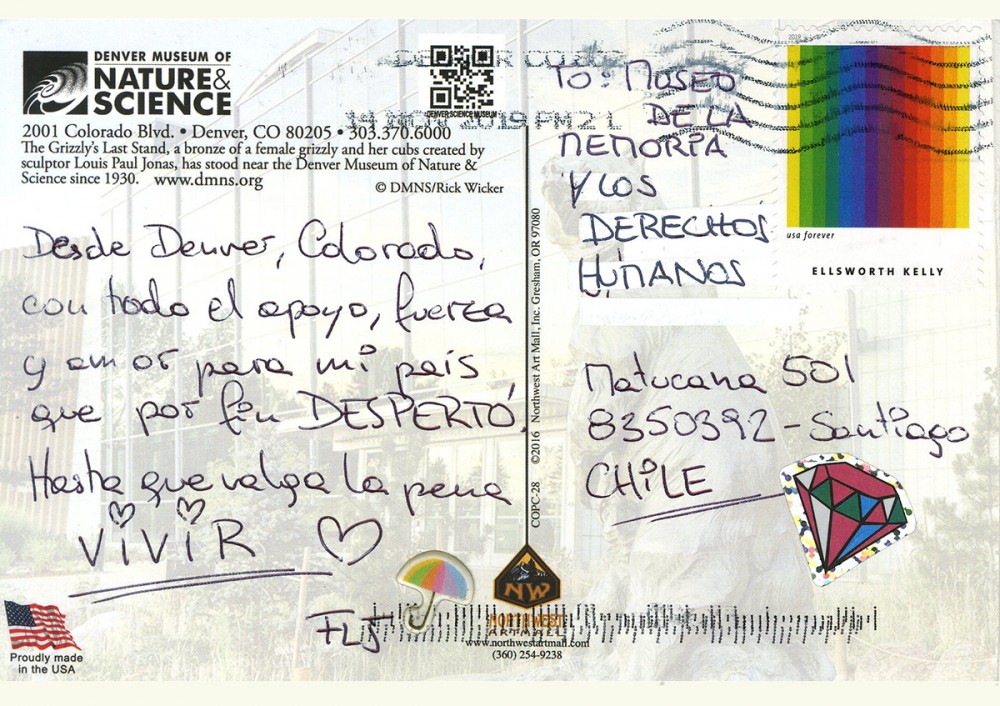 DENVER MUSEUM OF
NATURE &
SCIENCE
2001 Colorado Blvd. • Denver, CO 80205 • 303.370.6000
The Grizzly's Last Stand, a bronze of a female grizzly and her cubs created by
sculptor Louis Paul Jonas, has stood near the Denver Museum of Nature &
Science since 1930. www.dmns.org
© DMNS/Rick Wicker
DENVER SCIENCE MUSEUM
2019 PM 2 L
Desde Denver, Colorado,
con todo el apoyo, fuerza
y amor para mi país
que por fin DESPERTÓ.
Hasta que valga la pena
ViViR
FLJ
Proudly made
in the USA
COPC-28 ©2016 Northwest Art Mall, Inc. Gresham, OR 97080
NW
NORTHWEST
ART MALL
www.northwestartmall.com
(360) 254-9238
TO: MUSEO
DE LA
MEMORIA
Y LOS
DERECHOS
HUMANOS
Matucana 501
8350392 - Santiago
CHiLE
2019
usa forever
ELLSWORTH KELLY